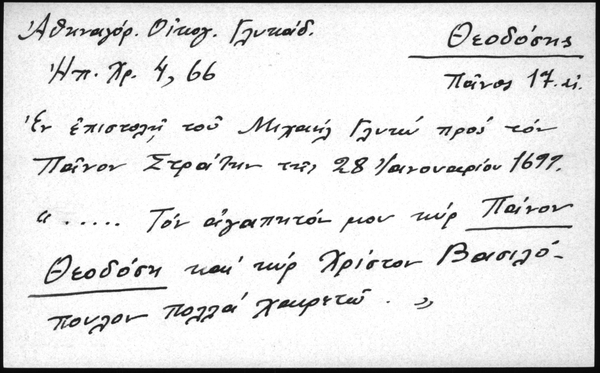 Ἀθηναγόρ. Οἰκογ. Γλυκάδ.
Θεοδόσης
Ἠπ. Χρ. 4, 66
Πᾶνος 17. αἰ.
Ἐν ἐπιστολῇ τοῦ Μιχαήλ Γλυκῦ πρός τόν
Πᾶνον Στράτην τῆς 28 Ἰανουαρίου 1697.
"..... Τόν ἀγαπητόν μου κύρ Πᾶνον
Θεοδόση καί κύρ Χρίστον Βασιλό-
πουλον πολλά χαιρετῶ. "